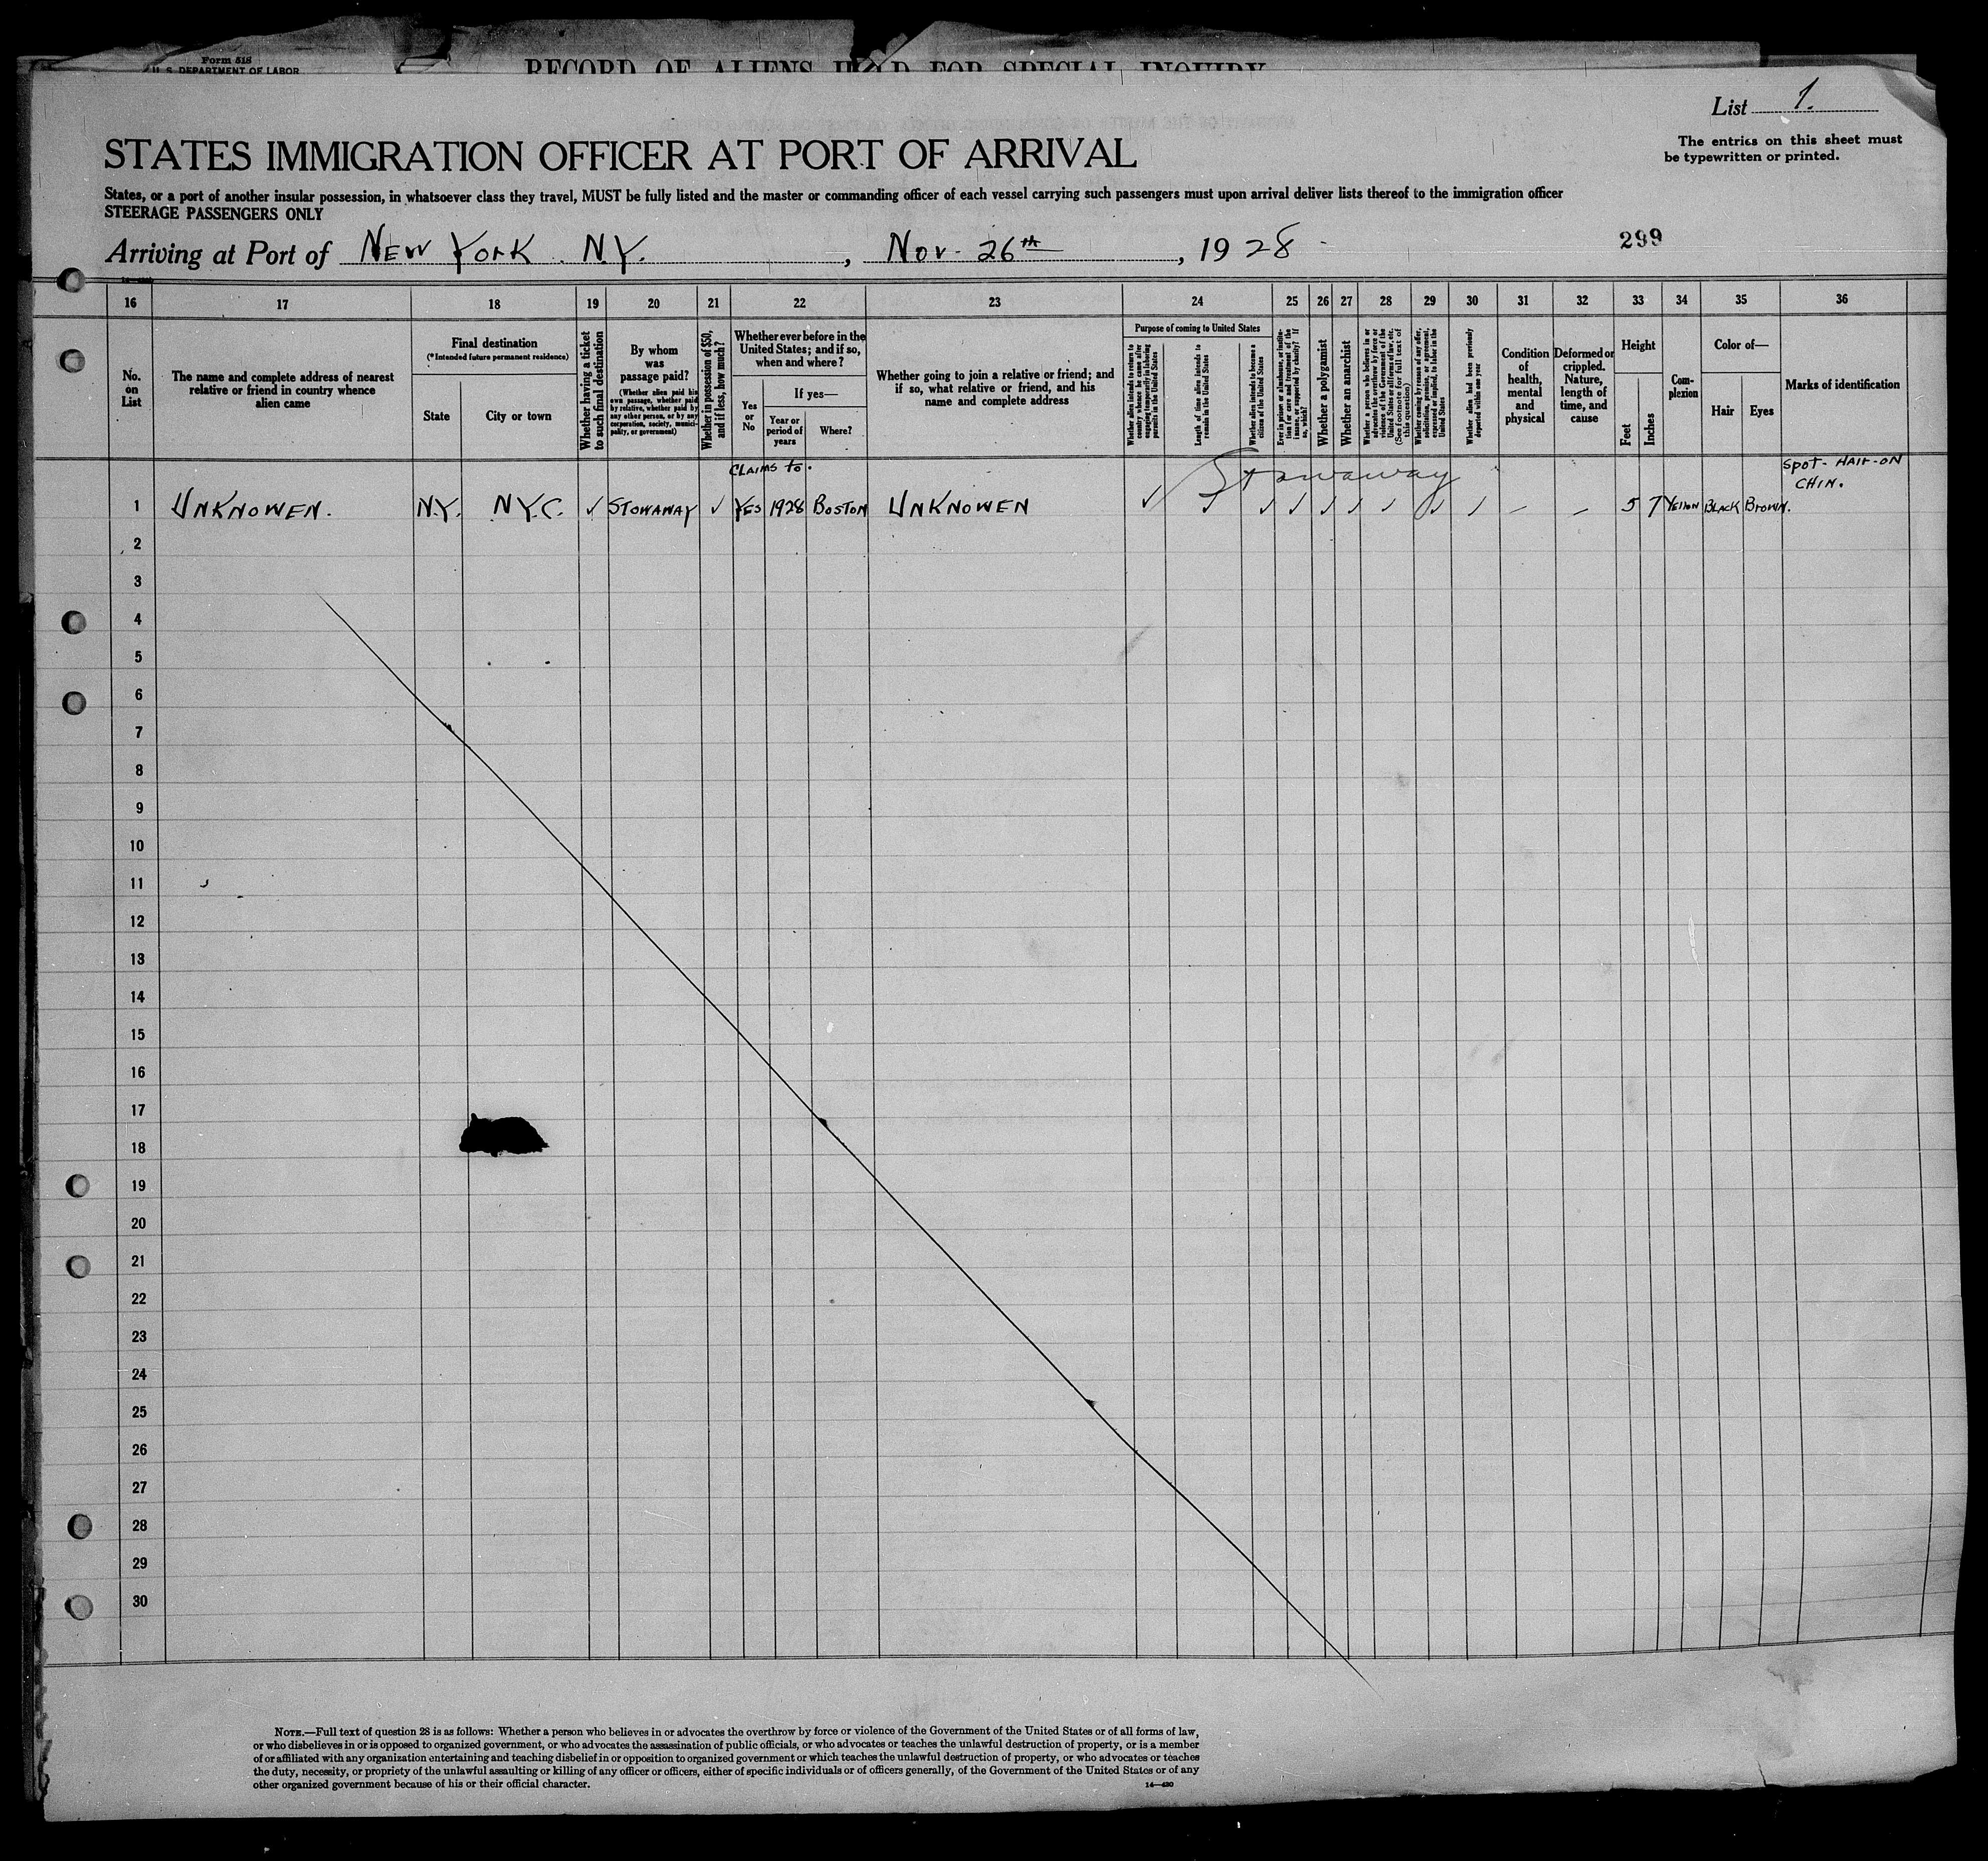 Form 518
U. S. DEPARTMENT OF LABOR
RECORD OF ALIENS HELD FOR SPECIAL INQUIRY
List 1.
The entries on this sheet must
be typewritten or printed.
STATES IMMIGRATION OFFICER AT PORT OF ARRIVAL
States, or a port of another insular possession, in whatsoever class they travel, MUST be fully listed and the master or commanding officer of each vessel carrying such passengers must upon arrival deliver lists thereof to the immigration officer
STEERAGE PASSENGERS ONLY
Arriving at Port of NEW YORK N.Y., Nov. 26th, 1928
299
16 17 18 19 20 21 22 23 24 25 26 27 28 29 30 31 32 33 34 35 36
No.
on
List
The name and complete address of nearest
relative or friend in country whence
alien came
Final destination
(*Intended future permanent residence)
State
City or town
Whether having a ticket
to such final destination
By whom
was
passage paid?
(Whether alien paid his
own passage, whether paid
by relative, whether paid by
any other person, or by any
corporation, society, munici-
pality, or government)
Whether in possession of $50,
and if less, how much?
Whether ever before in the
United States; and if so,
when and where?
Yes
or
No
If yes—
Year or
period of
years
Where?
Whether going to join a relative or friend; and
if so, what relative or friend, and his
name and complete address
Purpose of coming to United States
Whether alien intends to return to
country whence he came after
engaging temporarily in laboring
pursuits in the United States
Length of time alien intends to
remain in the United States
Whether alien intends to become a
citizen of the United States
Ever in prison or almshouse, or institu-
tion for care and treatment of the
insane, or supported by charity? If
so, which?
Whether a polygamist
Whether an anarchist
Whether a person who believes in or
advocates the overthrow by force or
violence of the Government of the
United States or all forms of law, etc.
(See footnote for full text of
this question)
Whether coming by reason of any offer,
solicitation, promise, or agreement,
expressed or implied, to labor in the
United States
Whether alien had been previously
deported within one year
Condition
of
health,
mental
and
physical
Deformed or
crippled.
Nature,
length of
time, and
cause
Height
Feet
Inches
Com-
plexion
Color of—
Hair
Eyes
Marks of identification
CLAIMS to.
Stowaway
SPOT- HAIR-ON
CHIN.
1 UNKNOWEN. N.Y. N.Y.C. ✓ STOWAWAY ✓ YES 1928 BOSTON UNKNOWEN ✓ ✓ ✓ ✓ ✓ ✓ ✓ ✓ ✓ – – 5 7 YELLOW BLACK BROWN.
2
3
4
5
6
7
8
9
10
11
12
13
14
15
16
17
18
19
20
21
22
23
24
25
26
27
28
29
30
NOTE.—Full text of question 28 is as follows: Whether a person who believes in or advocates the overthrow by force or violence of the Government of the United States or of all forms of law,
or who disbelieves in or is opposed to organized government, or who advocates the assassination of public officials, or who advocates or teaches the unlawful destruction of property, or is a member
of or affiliated with any organization entertaining and teaching disbelief in or opposition to organized government or which teaches the unlawful destruction of property, or who advocates or teaches
the duty, necessity, or propriety of the unlawful assaulting or killing of any officer or officers, either of specific individuals or of officers generally, of the Government of the United States or of any
other organized government because of his or their official character.
14—430